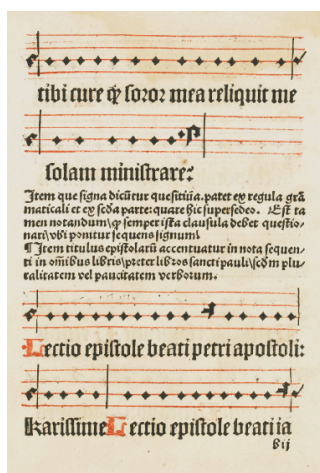 tibi cure qꝫ soror mea reliquit me
solam ministrare?
Item que signa dicūtur quesitiuia. patet ex regula grā
maticali et ex scđa parte: quare hic supersedeo. Est ta
men notandum\ qꝫ semper ista clausula debet questio⸗
nari\ vbi ponitur sequens signum\
¶ Item titulus epistolarū accentuatur in nota sequen⸗
ti in om̄ibus libris\ preter libros sancti pauli\ scđm plu⸗
ralitatem vel paucitatem verborum.
Lectio epistole beati petri apostoli:
Karissime Lectio epistole beati ia
bij